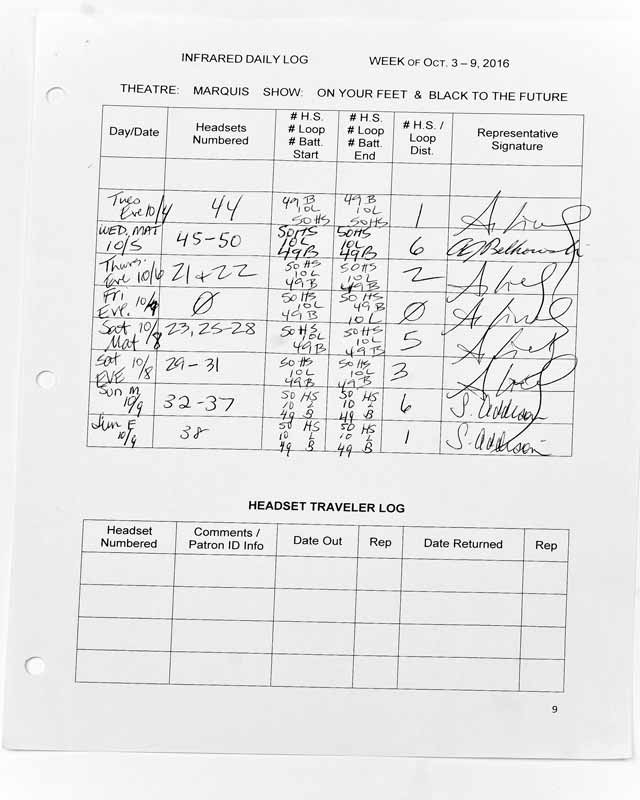 INFRARED DAILY LOG WEEK OF OCT. 3 – 9, 2016
THEATRE: MARQUIS SHOW: ON YOUR FEET & BLACK TO THE FUTURE
Day/Date Headsets Numbered # H.S. # Loop # Batt. Start # H.S. # Loop # Batt. End # H.S. / Loop Dist. Representative Signature
Tues Eve 10/4 44 49 B 10L 50HS 49 B 10L 50HS 1
WED, MAT 10/5 45-50 50HS 10L 49B 50HS 10L 49B 6
Thurs. Eve 10/6 21 + 22 50 HS 10L 49 B 50HS 10L 49 B 2
Fri Eve. 10/ Ø 50 HS 10L 49 B 50 HS 49 B 10 L Ø
Sat 10/8 Mat 23, 25-28 50 HS 10L 49B 50HS 10 L 49 B 5
Sat 10/8 EVE 29-31 50 HS 10L 49B 50 HS 10L 49B 3
Sun M 10/9 32-37 50 HS 10 L 49 B 50 HS 10 L 49 B 6 S. Addison
Sun E 10/9 38 50 HS 10 L 49 B 50 HS 10 L 49 B 1 S. Addison
HEADSET TRAVELER LOG
Headset Numbered Comments / Patron ID Info Date Out Rep Date Returned Rep
9